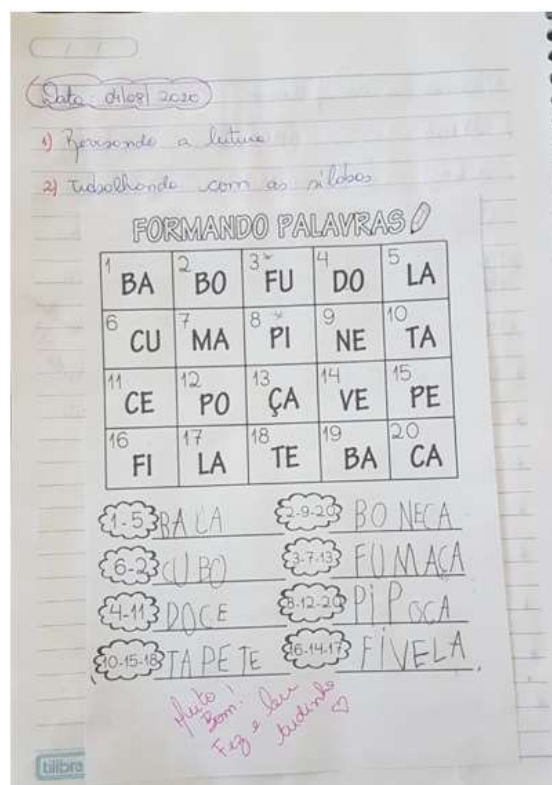 Data: 04/08/2020
1) Revisando a leitura
2) Trabalhando com as sílabas
FORMANDO PALAVRAS
1 BA 2 BO 3 FU 4 DO 5 LA
6 CU 7 MA 8 PI 9 NE 10 TA
11 CE 12 PO 13 ÇA 14 VE 15 PE
16 FI 17 LA 18 TE 19 BA 20 CA
1-5 BALA 2-9-20 BONECA
6-2 CUBO 3-7-13 FUMAÇA
4-11 DOCE 8-12-20 PIPOCA
10-15-18 TAPETE 16-14-17 FIVELA
Muito
Bom!
Fez e leu
tudinho
tilibra